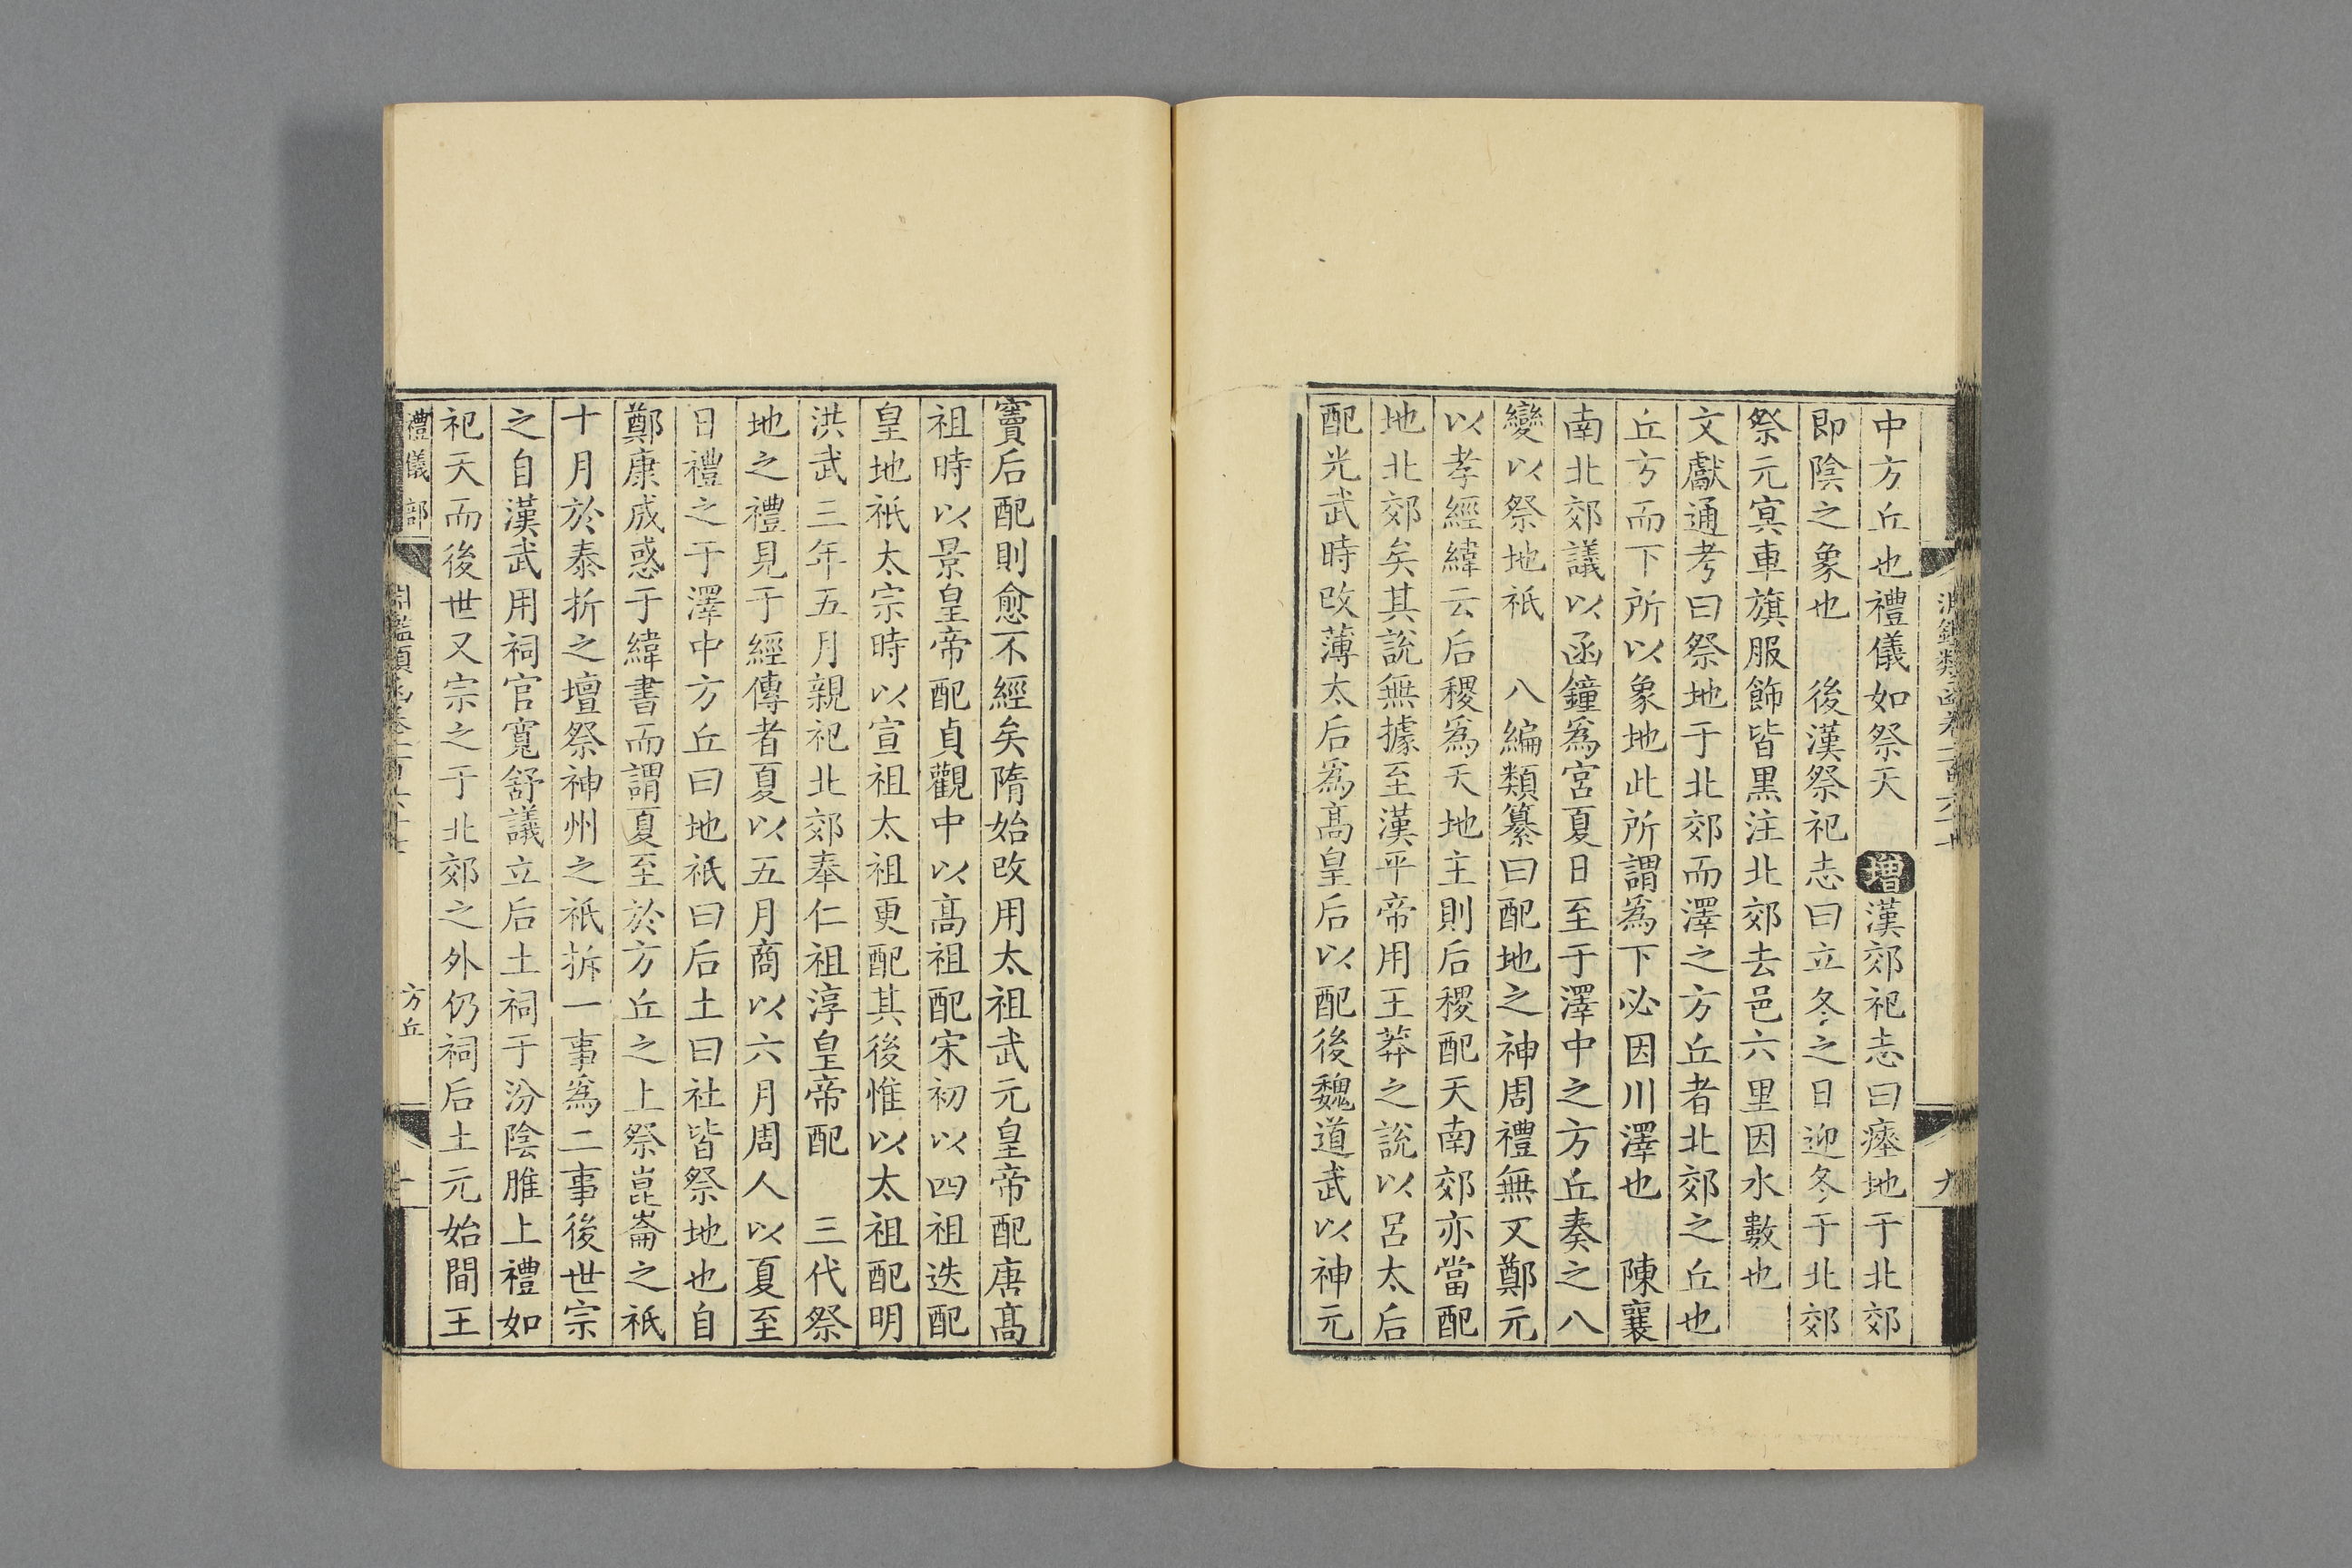 中方丘也禮儀如祭天　增漢郊祀志曰瘞地于北郊
即陰之象也　後漢祭祀志曰立冬之日迎冬于北郊
祭元冥車旗服飾皆黑注北郊去邑六里因水數也
文獻通考曰祭地于北郊而澤之方丘者北郊之丘也
丘方而下所以象地此所謂爲下必因川澤也　陳襄
南北郊議以函鐘爲宮夏日至于澤中之方丘奏之八
變以祭地祇　八編類纂曰配地之神周禮無文鄭元
以孝經緯云后稷爲天地主則后稷配天南郊亦當配
地北郊矣其說無據至漢平帝用王莽之說以呂太后
配光武時改薄太后爲高皇后以配後魏道武以神元
竇后配則愈不經矣隋始改用太祖武元皇帝配唐高
祖時以景皇帝配貞觀中以高祖配宋初以四祖迭配
皇地祇太宗時以宣祖太祖更配其後惟以太祖配明
洪武三年五月親祀北郊奉仁祖淳皇帝配　三代祭
地之禮見于經傳者夏以五月商以六月周人以夏至
日禮之于澤中方丘曰地祇曰后土曰社皆祭地也自
鄭康成惑于緯書而謂夏至於方丘之上祭崑崙之祇
十月於泰折之壇祭神州之祇拆一事爲二事後世宗
之自漢武用祠官寬舒議立后土祠于汾陰脽上禮如
祀天而後世又宗之于北郊之外仍祠后土元始間王
禮儀部
方丘